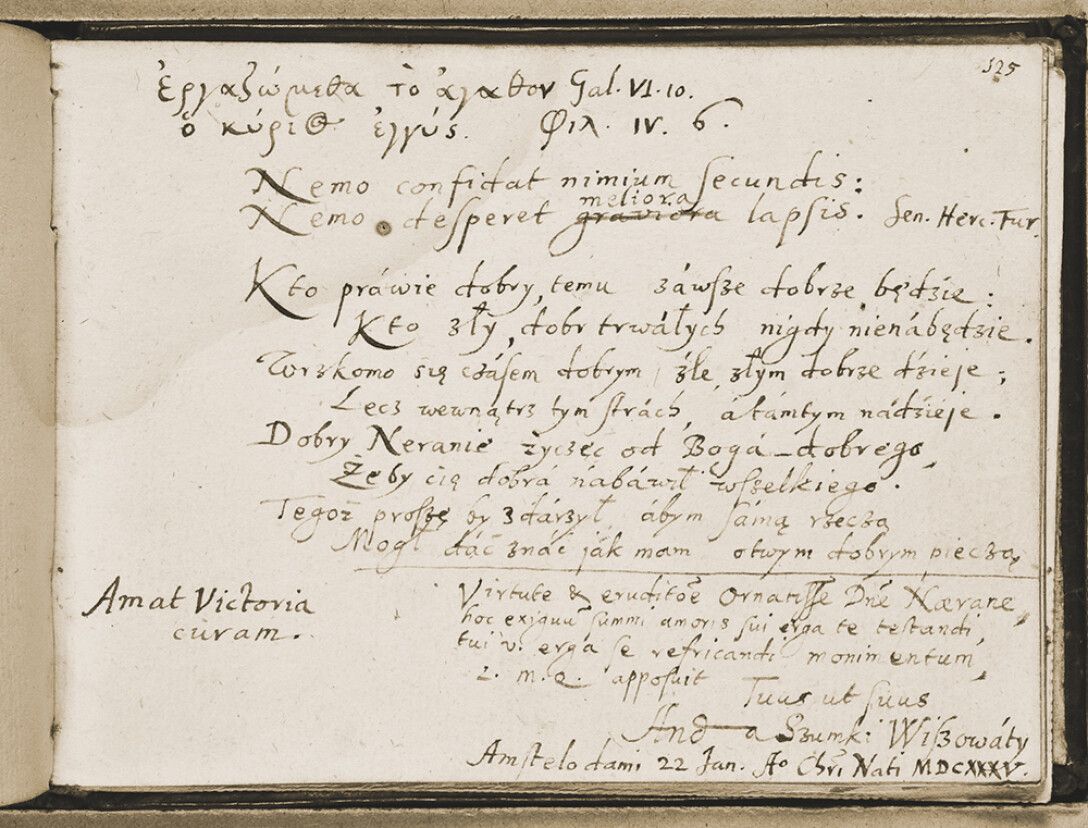 125
ἐργαζώμεθα τὸ ἀγαθον Gal. VI. 10.
ὁ κύριος ἐγγύς. Φιλ. IV. 6.
Nemo confidat nimium secundis:
meliora
Nemo desperet graviora lapsis. Sen. Herc. Fur.
Kto práwie dobry, temu záwsze dobrze będzie:
Kto zły, dobr trwáłych nigdy nienábędzie.
Wrzkomo się czásem dobrym źle, złym dobrze dźieje;
Lecz wewnątrz tym strách, á támtym nádźieje.
Dobry Neranie życzęć od Bogá dobrego,
Żeby cię dobrá nábáwił wszelkiego.
Tegoż proszę by zdárzył, ábym sámą rzeczą
Mogł dáć znáć ják mam o twym dobrym pieczą,
Amat Victoria
curam.
Virtute & eruditõe Ornatisse Dñe Nærane,
hoc exiguũ summi amoris sui erga te testandi,
tui v. erga se refricandi monimentum,
L. m. Q. apposuit
Tuus ut suus
And a Szumki Wiszowáty
Amstelodami 22 Jan. Ao Chri Nati MDCXXXV.